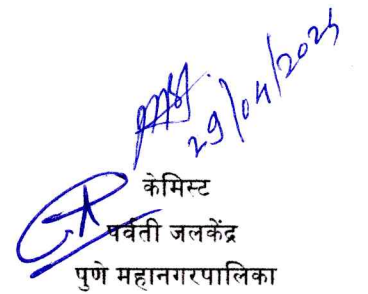 29/04/2025
केमिस्ट
पर्वती जलकेंद्र
पुणे महानगरपालिका